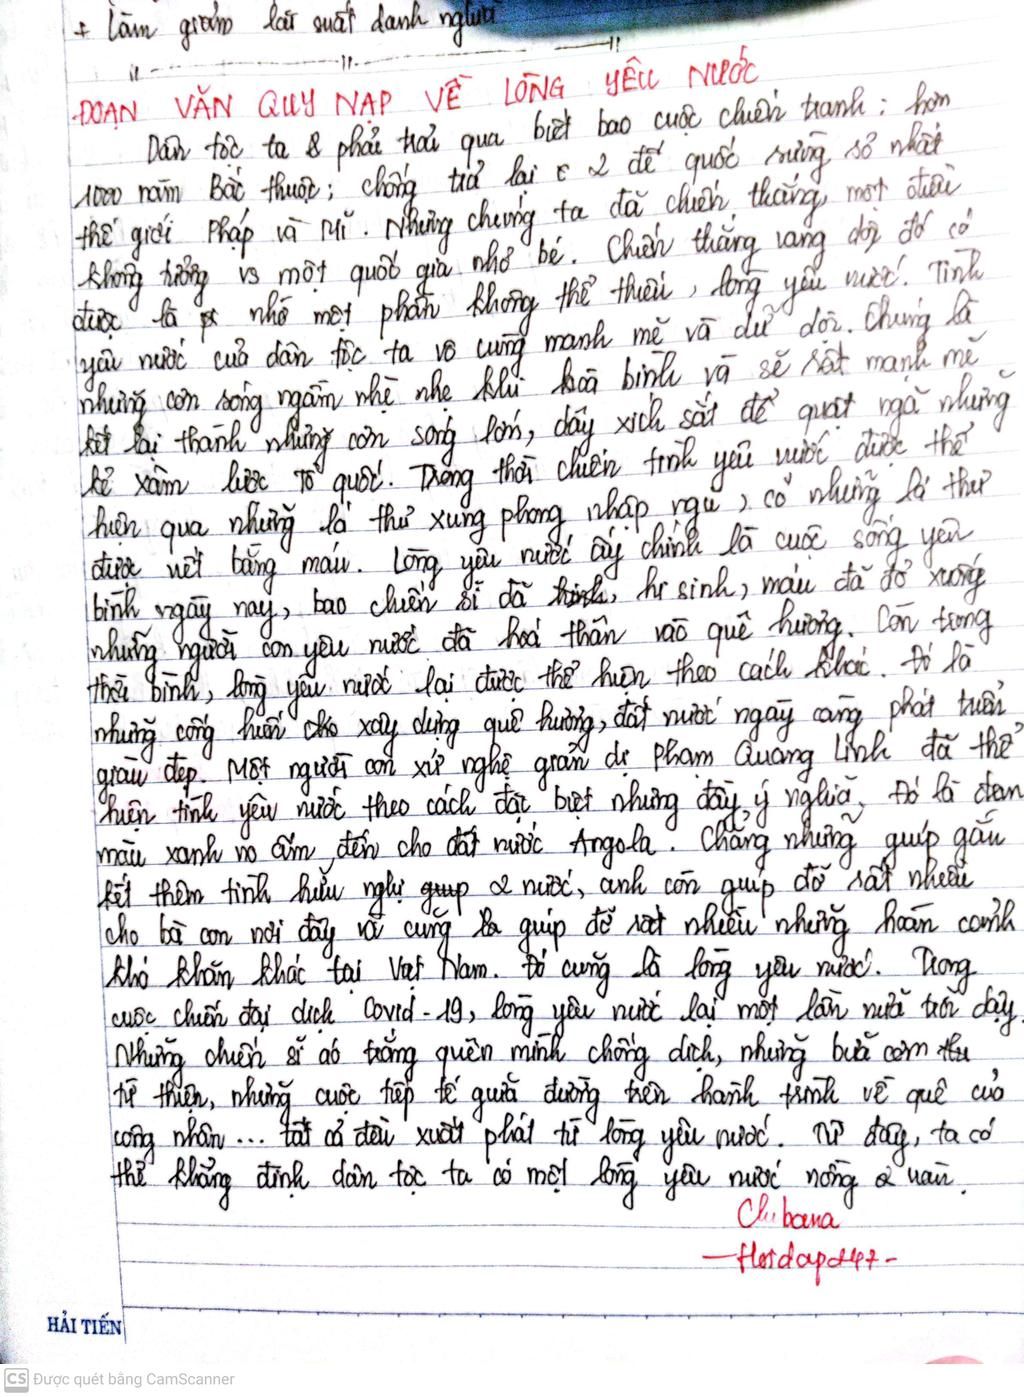 + Làm giảm lãi suất danh nghĩa
ĐOẠN VĂN QUY NẠP VỀ LÒNG YÊU NƯỚC
Dân tộc ta & phải trải qua biết bao cuộc chiến tranh: hơn
1000 năm Bắc thuộc; chống trả lại 2 đế quốc sừng sỏ nhất
thế giới Pháp và Mĩ. Nhưng chúng ta đã chiến thắng, một điều
không tưởng vs một quốc gia nhỏ bé. Chiến thắng vang dội đó có
được là nhờ một phần không thể thiếu, lòng yêu nước. Tình
yêu nước của dân tộc ta vô cùng mạnh mẽ và dữ dội. Chúng là
những cơn sóng ngầm nhè nhẹ khi hoà bình và sẽ rất mạnh mẽ
kết lại thành những cơn sóng lớn, dây xích sắt để quật ngã những
kẻ xâm lược Tổ quốc. Trong thời chiến tình yêu nước được thể
hiện qua những lá thư xung phong nhập ngũ, có những lá thư
được viết bằng máu. Lòng yêu nước ấy chính là cuộc sống yên
bình ngày nay, bao chiến sĩ đã hi sinh, máu đã đổ xuống
những người con yêu nước đã hoá thân vào quê hương. Còn trong
thời bình, lòng yêu nước lại được thể hiện theo cách khác. Đó là
những cống hiến cho xây dựng quê hương, đất nước ngày càng phát triển
giàu đẹp. Một người con xứ nghệ giản dị Phạm Quang Linh đã thể
hiện tình yêu nước theo cách đặc biệt nhưng đầy ý nghĩa. Đó là đem
màu xanh no ấm, đến cho đất nước Angola. Chẳng những giúp gắn
kết thêm tình hữu nghị giup 2 nước, anh còn giúp đỡ rất nhiều
cho bà con nơi đây và cũng giúp đỡ rất nhiều những hoàn cảnh
khó khăn khác tại Việt Nam. Đó cũng là lòng yêu nước. Trong
cuộc chiến đại dịch Covid-19, lòng yêu nước lại một lần nữa trỗi dậy.
Những chiến sĩ áo trắng quên mình chống dịch, những bữa cơm
từ thiện, những cuộc tiếp tế giữa đường trên hành trình về quê của
công nhân... tất cả đều xuất phát từ lòng yêu nước. Từ đây, ta có
thể khẳng định dân tộc ta có một lòng yêu nước nồng nàn.
Chibana
-Hoidap247-
HẢI TIẾN
CS Được quét bằng CamScanner